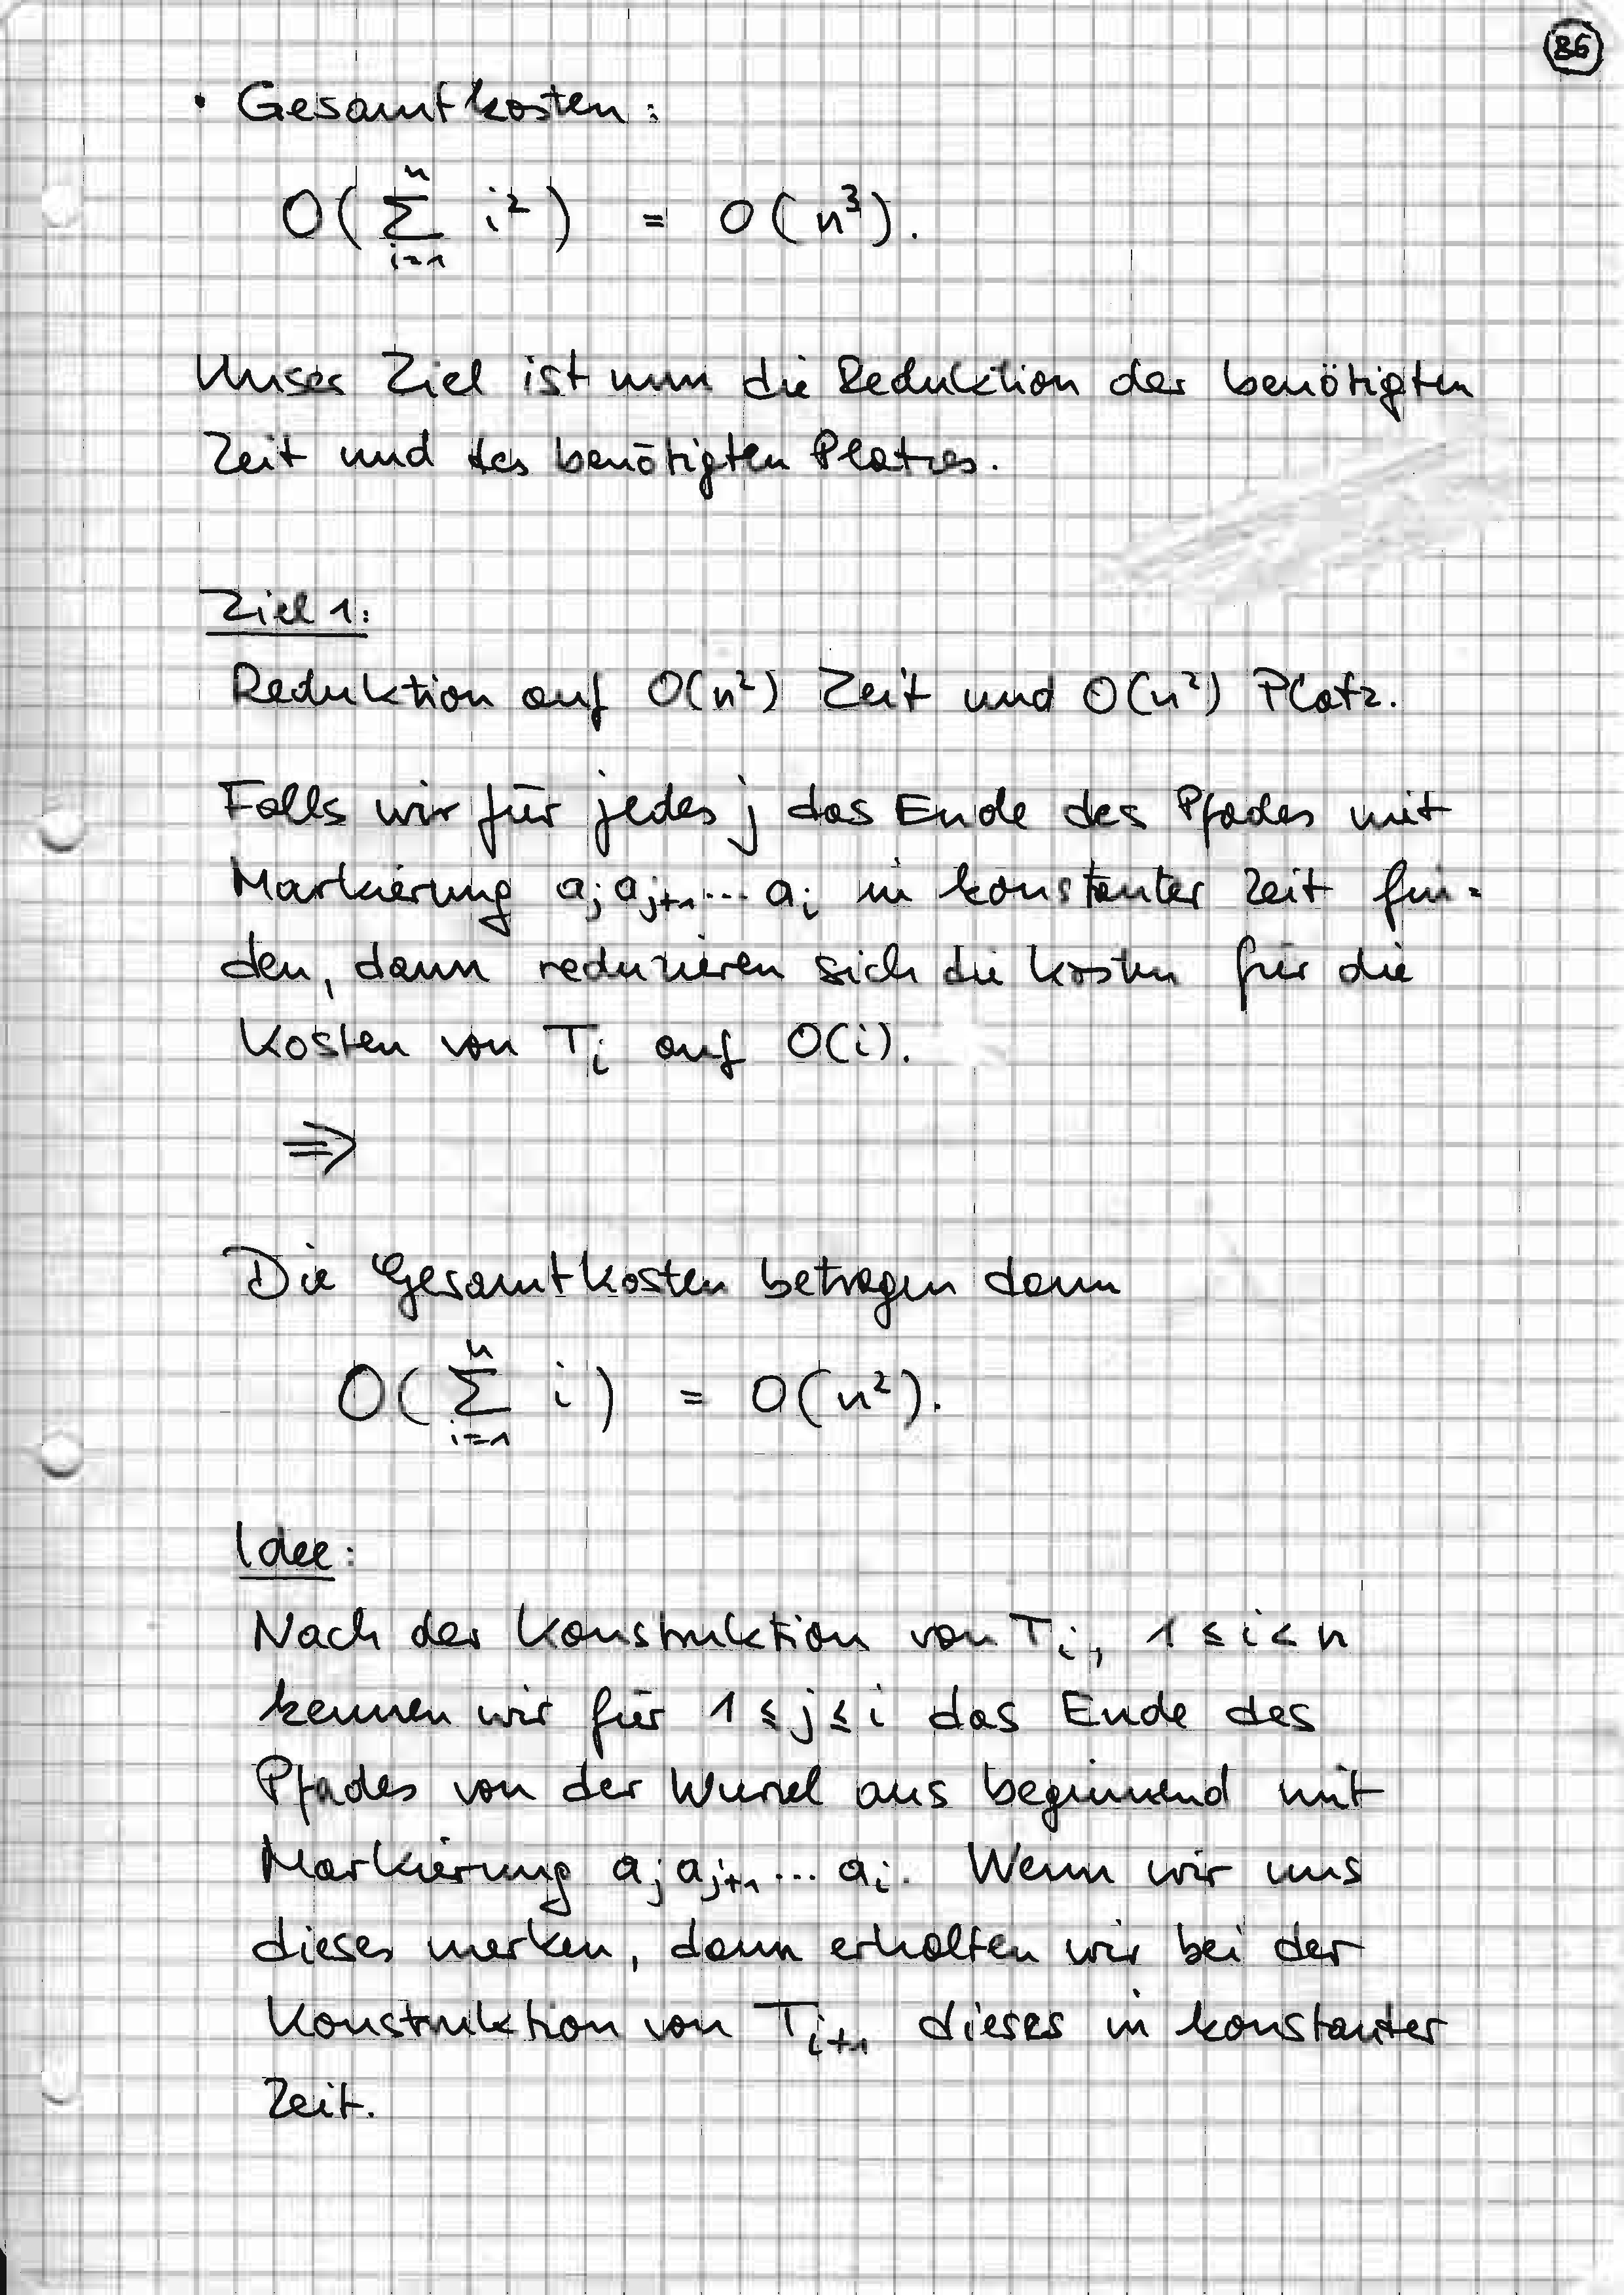 86
• Gesamtkosten:
O( n∑i=1 i² ) = O(n³).
Unser Ziel ist nun die Reduktion der benötigten
Zeit und des benötigten Platzes.
Ziel 1:
Reduktion auf O(n²) Zeit und O(n²) Platz.
Falls wir für jedes j das Ende des Pfades mit
Markierung aⱼaⱼ₊₁...aᵢ in konstanter Zeit fin-
den, dann reduzieren sich die Kosten für die
Kosten von Tᵢ auf O(i).
⇒
Die Gesamtkosten betragen dann
O( n∑i=1 i ) = O(n²).
Idee:
Nach der Konstruktion von Tᵢ, 1 ≤ i < n
kennen wir für 1 ≤ j ≤ i das Ende des
Pfades von der Wurzel aus beginnend mit
Markierung aⱼaⱼ₊₁...aᵢ. Wenn wir uns
dieses merken, dann erhalten wir bei der
Konstruktion von Tᵢ₊₁ dieses in konstanter
Zeit.